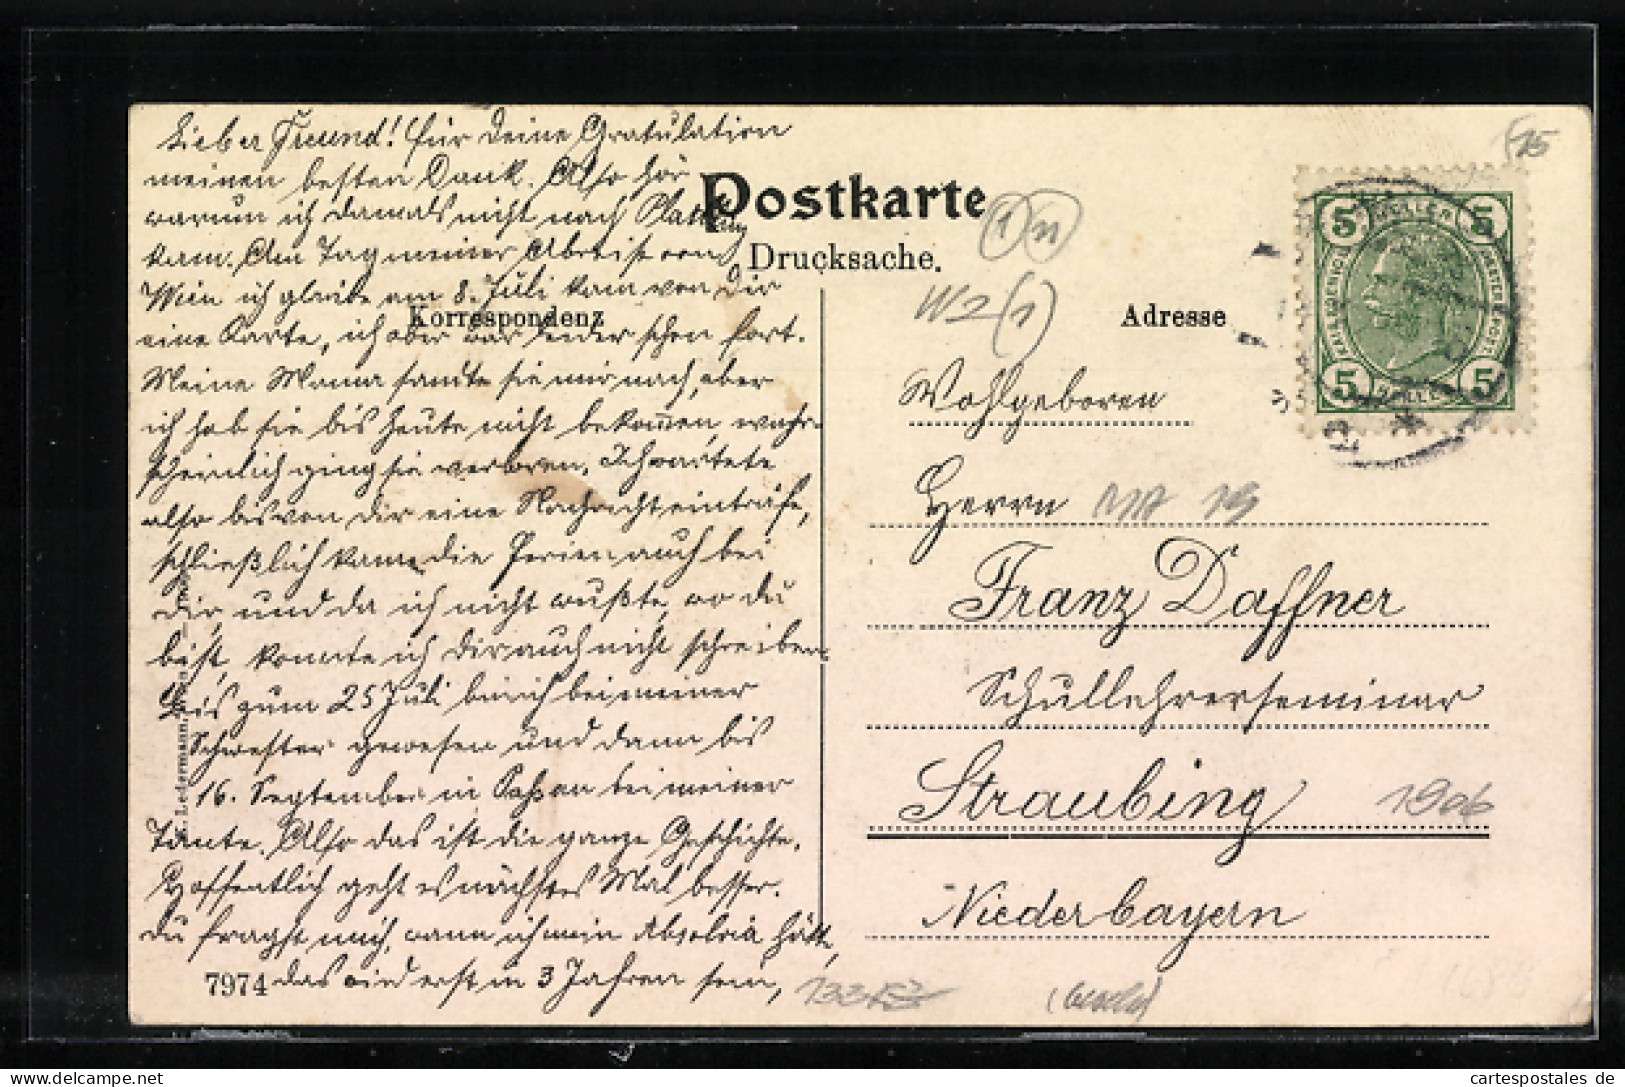 Lieber Freund! Für Deine Gratulation
meinen besten Dank. Also hör
warum ich damals nicht nach Plattling
kam. Am Tag meiner Abreise von
Wien ich glaube am 8. Juli kam von Dir
eine Karte, ich aber war leider schon fort.
Meine Mama sandte sie mir nach, aber
ich hab sie bis heute nicht bekommen, wahr-
scheinlich ging sie verloren. Ich wartete
also bis von Dir eine Nachricht einträfe,
schließlich kamen die Ferien auch bei
Dir, und da ich nicht wußte, wo Du
bist, konnte ich Dir auch nicht schreiben.
Bis zum 25 Juli bin ich bei meiner
Schwester gewesen und dann bis
16. September in bei meiner
Tante. Also das ist die ganze Geschichte.
Hoffentlich geht es nächstes Mal besser.
Du fragst mich, wann ich mein Absolvia hätte,
das wird erst in 3 Jahren sein,
7974
Postkarte
Drucksache.
Korrespondenz
Adresse
Wohlgeboren
Herrn
Franz Daffner
Schullehrerseminar
Straubing
1906
Niederbayern
5 HELLER 5
5 HELLER 5
W2(1)
cartespostales de
© the-collection-world.net